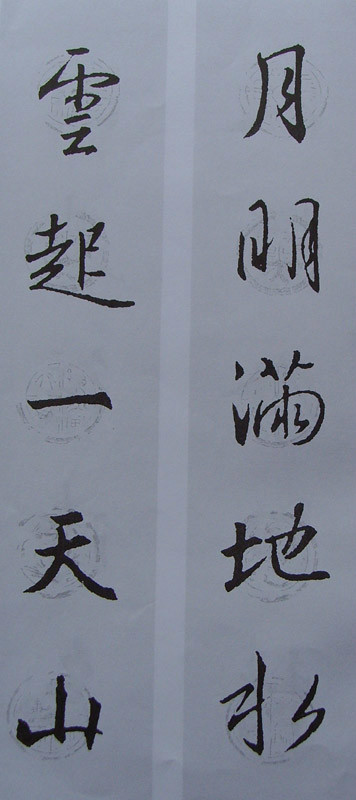 月明滿地水
雲起一天山